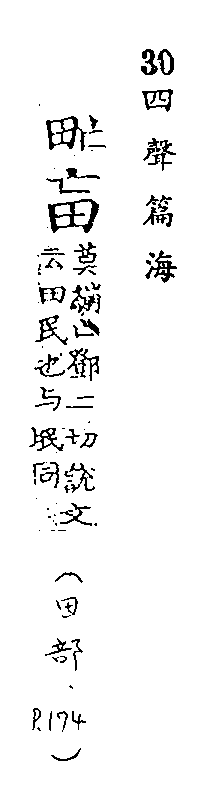 30 四聲篇海
莫亾鄧二切說文
云田民也与氓同
(田部、P.174)